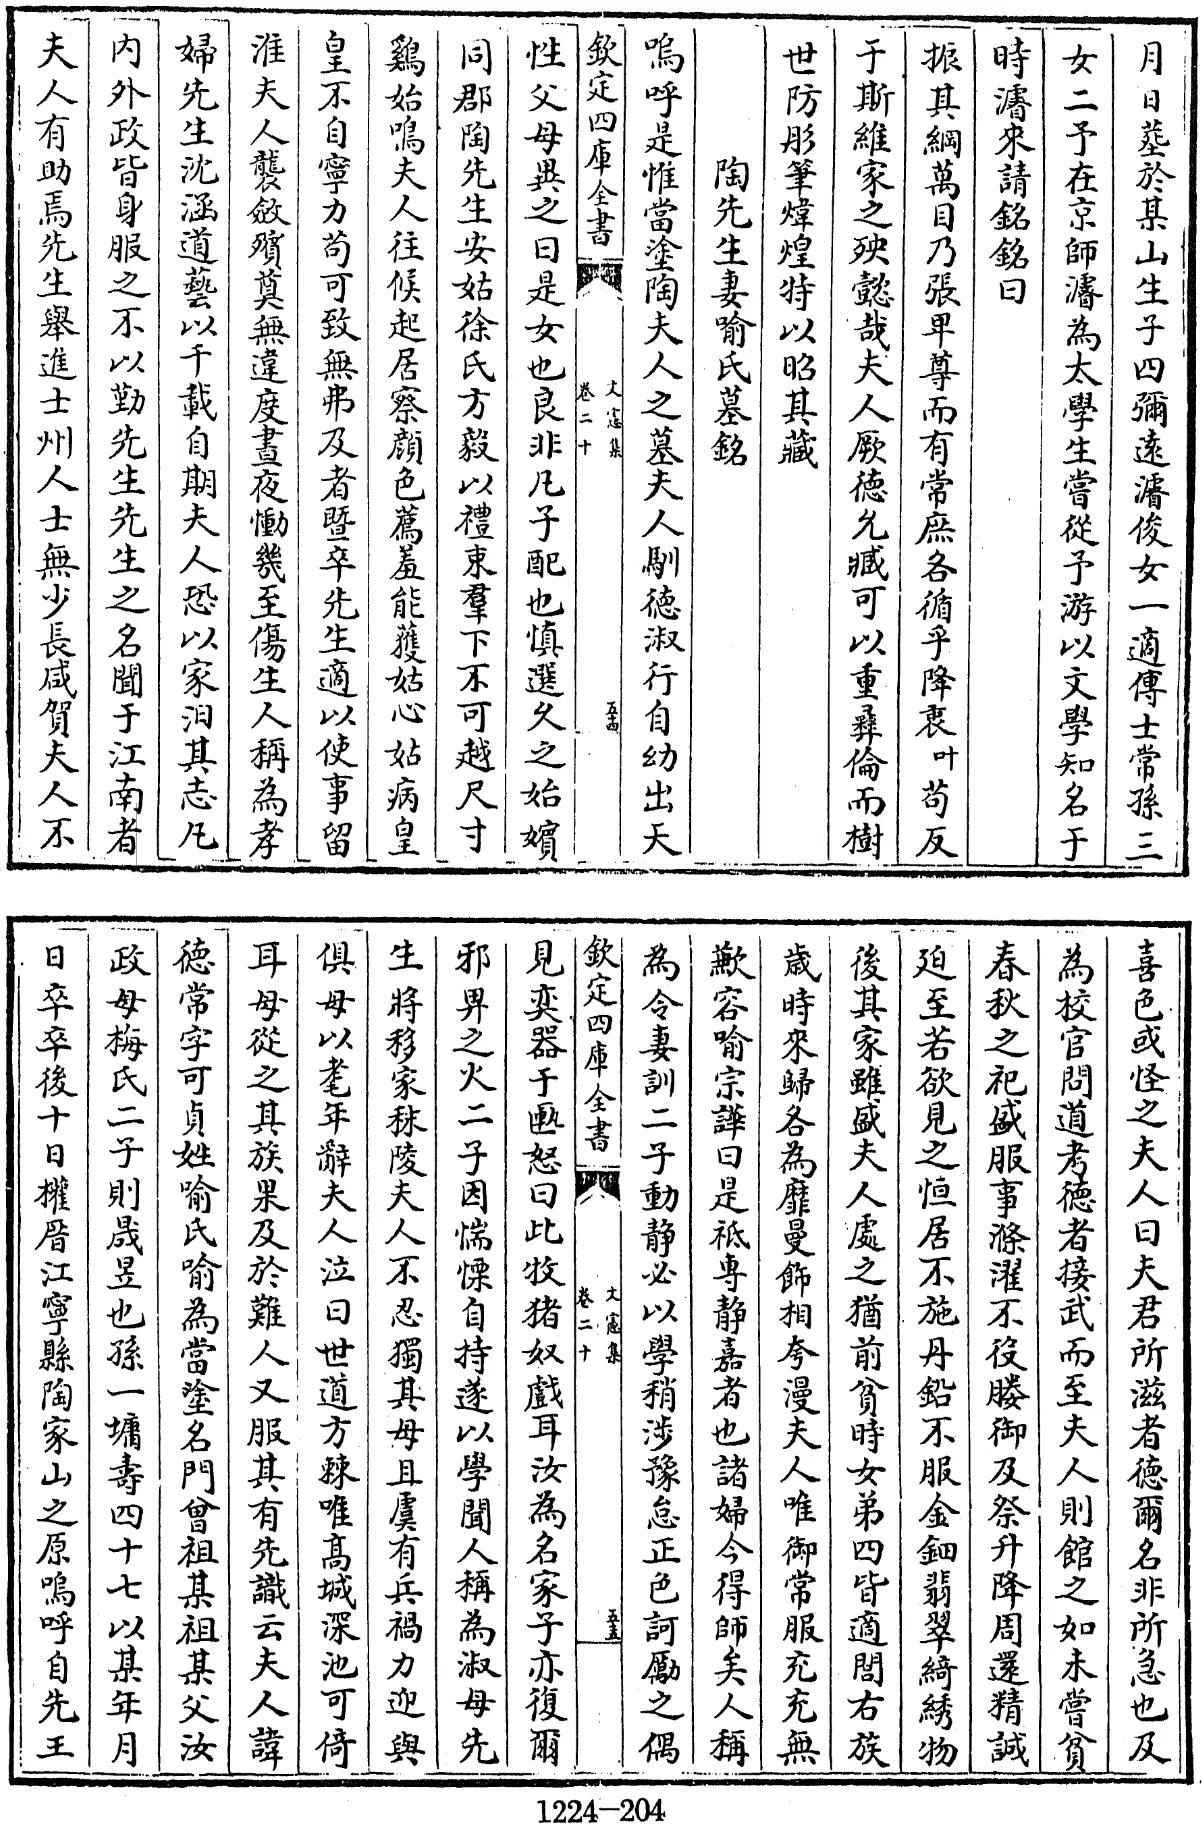 月日葬於某山生子四彌遠濬俊女一適傅士常孫三
女二予在京師濬為太學生嘗從予游以文學知名于
時濬來請銘銘曰
振其綱萬目乃張卑尊而有常庶各循乎降衷叶苟反
于斯維家之殃懿哉夫人厥徳允臧可以重彞倫而樹
世防彤筆煒煌特以昭其藏
陶先生妻喻氏墓銘
嗚呼是惟當塗陶夫人之墓夫人馴徳淑行自幼出天
欽定四庫全書
文憲集
卷二十
五四
性父母異之曰是女也良非凡子配也慎選久之始嬪
同郡陶先生安姑徐氏方毅以禮束羣下不可越尺寸
鷄始鳴夫人往候起居察顔色薦羞能獲姑心姑病皇
皇不自寧力苟可致無弗及者暨卒先生適以使事留
淮夫人襲斂殯奠無違度晝夜慟幾至傷生人稱為孝
婦先生沈涵道藝以千載自期夫人恐以家汨其志凡
内外政皆身服之不以勤先生先生之名聞于江南者
夫人有助焉先生舉進士州人士無少長咸賀夫人不
喜色或怪之夫人曰夫君所滋者徳爾名非所急也及
為校官問道考徳者接武而至夫人則館之如未嘗貧
春秋之祀盛服事滌濯不役媵御及祭升降周還精誠
廹至若欲見之恒居不施丹鉛不服金鈿翡翠綺綉物
後其家雖盛夫人處之猶前貧時女弟四皆適閭右族
歲時來歸各為靡曼飾相夸漫夫人唯御常服充充無
歉容喻宗譁曰是祗専静嘉者也諸婦今得師矣人稱
為令妻訓二子動静必以學稍涉豫怠正色訶勵之偶
欽定四庫全書
文憲集
卷二十
五五
見奕器于匭怒曰此牧猪奴戲耳汝為名家子亦復爾
邪畀之火二子因惴慄自持遂以學聞人稱為淑母先
生將移家秣陵夫人不忍獨其母且虞有兵禍力迎與
俱母以耄年辭夫人泣曰世道方棘唯髙城深池可倚
耳母從之其族果及於難人又服其有先識云夫人諱
徳常字可貞姓喻氏喻為當塗名門曾祖某祖某父汝
政母梅氏二子則晟昱也孫一墉壽四十七以某年月
日卒卒後十日權厝江寧縣陶家山之原嗚呼自先王
1224-204